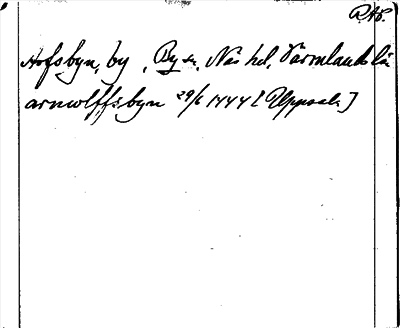 RAp.
Hofsbyn, by, By sn, Näs hd, Värmlands län
arnwlffsbyn 29/6 1444 [Uppsala]